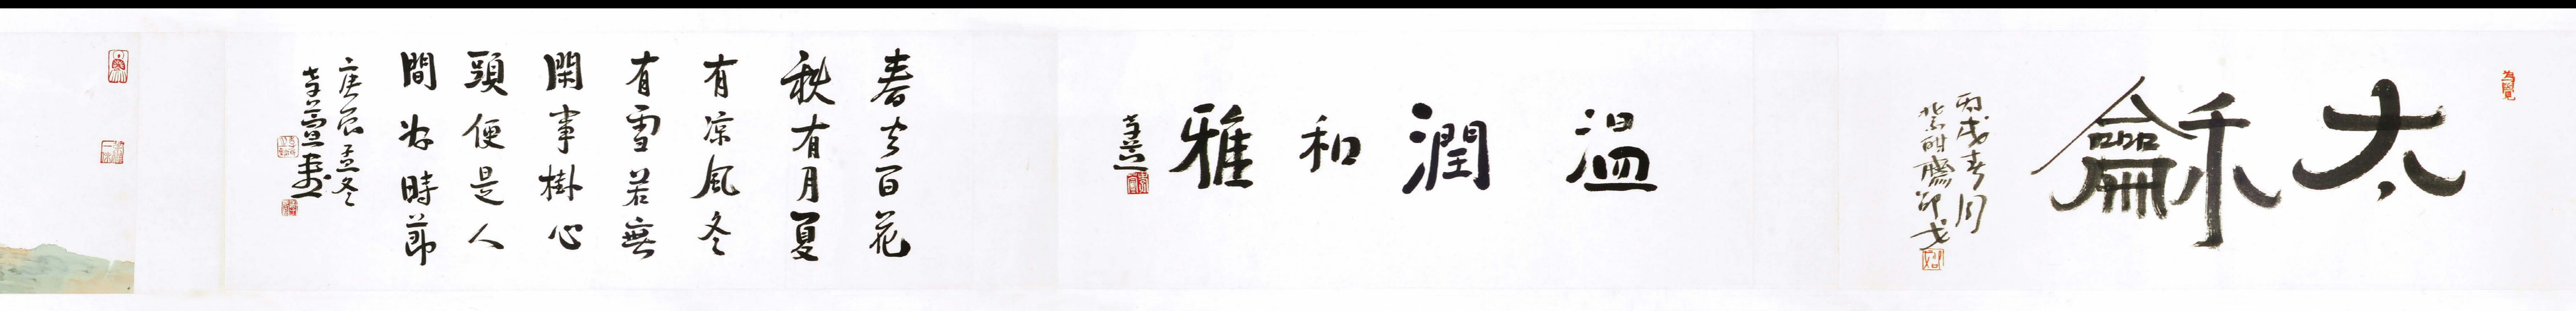 太龢
丙戌春月
溫潤和雅
春有百花
秋有月夏
有涼風冬
有雪若無
閑事掛心
頭便是人
間好時節
庚辰孟冬